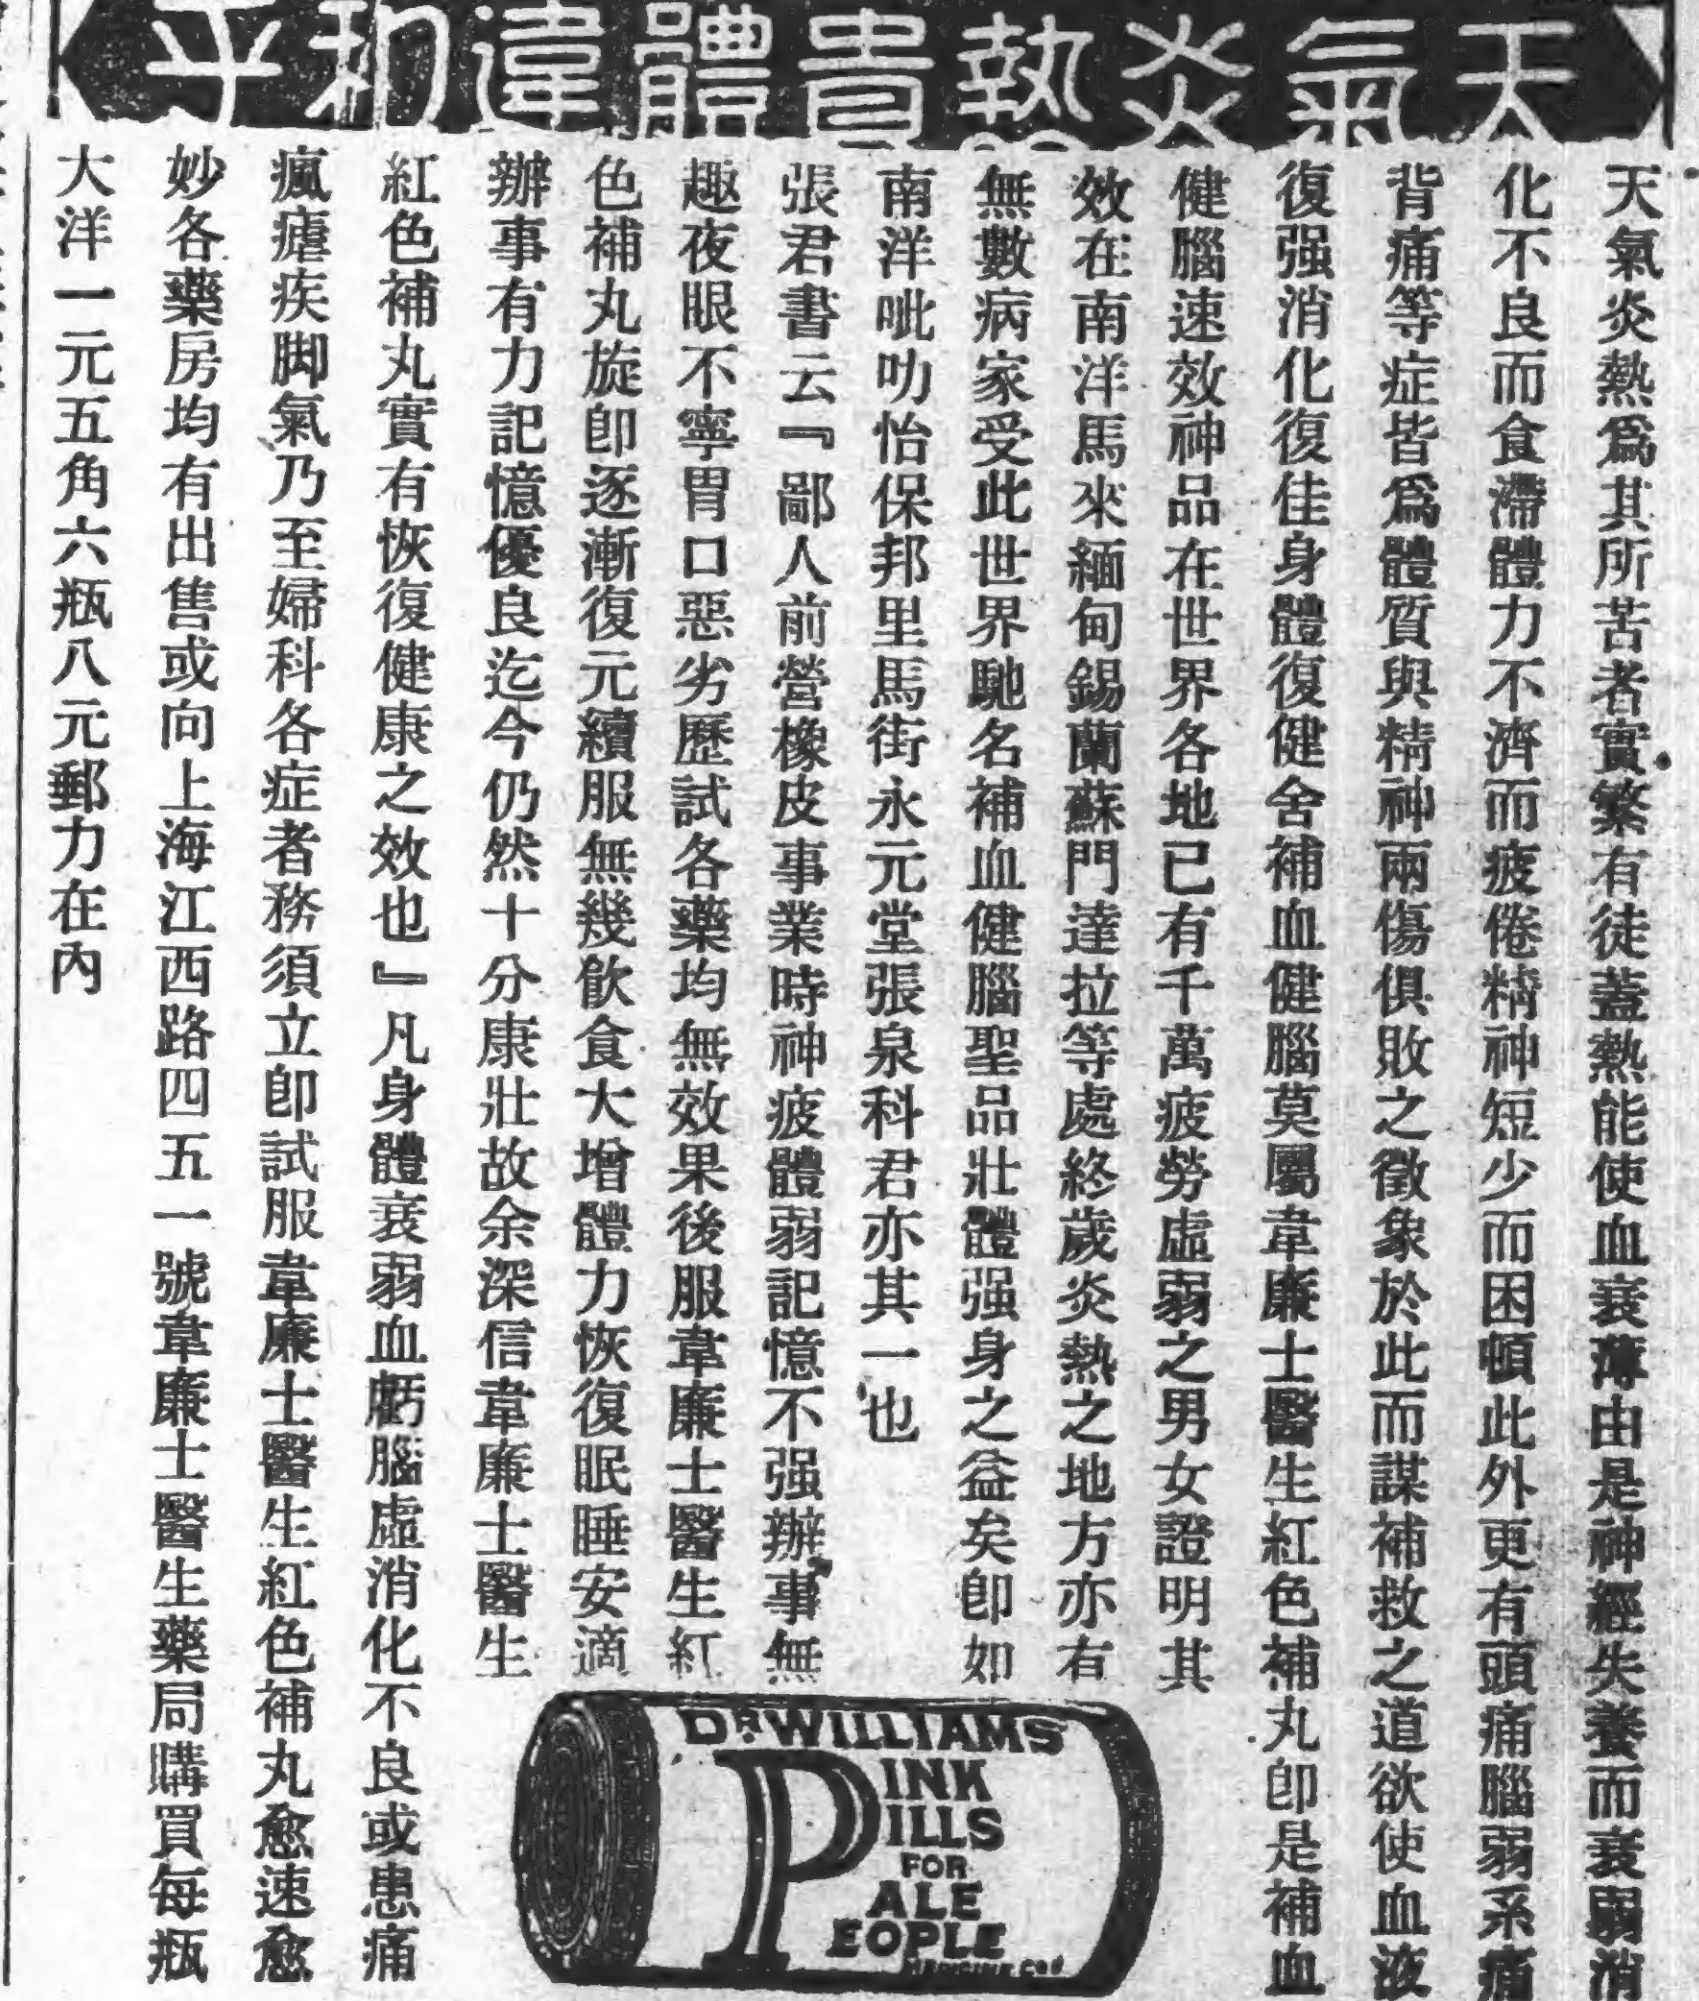 天氣炎熱貴體違和乎
天氣炎熱爲其所苦者實繁有徒蓋熱能使血衰薄由是神經失養而衰弱消
化不良而食滯體力不濟而疲倦精神短少而困頓此外更有頭痛腦弱系痛
背痛等症皆爲體質與精神兩傷俱敗之徵象於此而謀補救之道欲使血液
復强消化復佳身體復健舍補血健腦莫屬韋廉士醫生紅色補丸卽是補血
健腦速效神品在世界各地已有千萬疲勞虛弱之男女證明其
效在南洋馬來緬甸錫蘭蘇門達拉等處終歲炎熱之地方亦有
無數病家受此世界馳名補血健腦聖品壯體强身之益矣卽如
南洋呲叻怡保邦里馬街永元堂張泉科君亦其一也
張君書云『鄙人前營橡皮事業時神疲體弱記憶不强辦事無
趣夜眼不寧胃口惡劣歷試各藥均無效果後服韋廉士醫生紅
色補丸旋卽逐漸復元續服無幾飮食大增體力恢復眠睡安適
辦事有力記憶優良迄今仍然十分康壯故余深信韋廉士醫生
紅色補丸實有恢復健康之效也』凡身體衰弱血虧腦虛消化不良或患痛
瘋瘧疾脚氣乃至婦科各症者務須立卽試服韋廉士醫生紅色補丸愈速愈
妙各藥房均有出售或向上海江西路四五一號韋廉士醫生藥局購買每瓶
大洋一元五角六瓶八元郵力在內
DR. WILLIAMS'
PINK
PILLS
FOR
PALE
PEOPLE
MEDICINE CO.